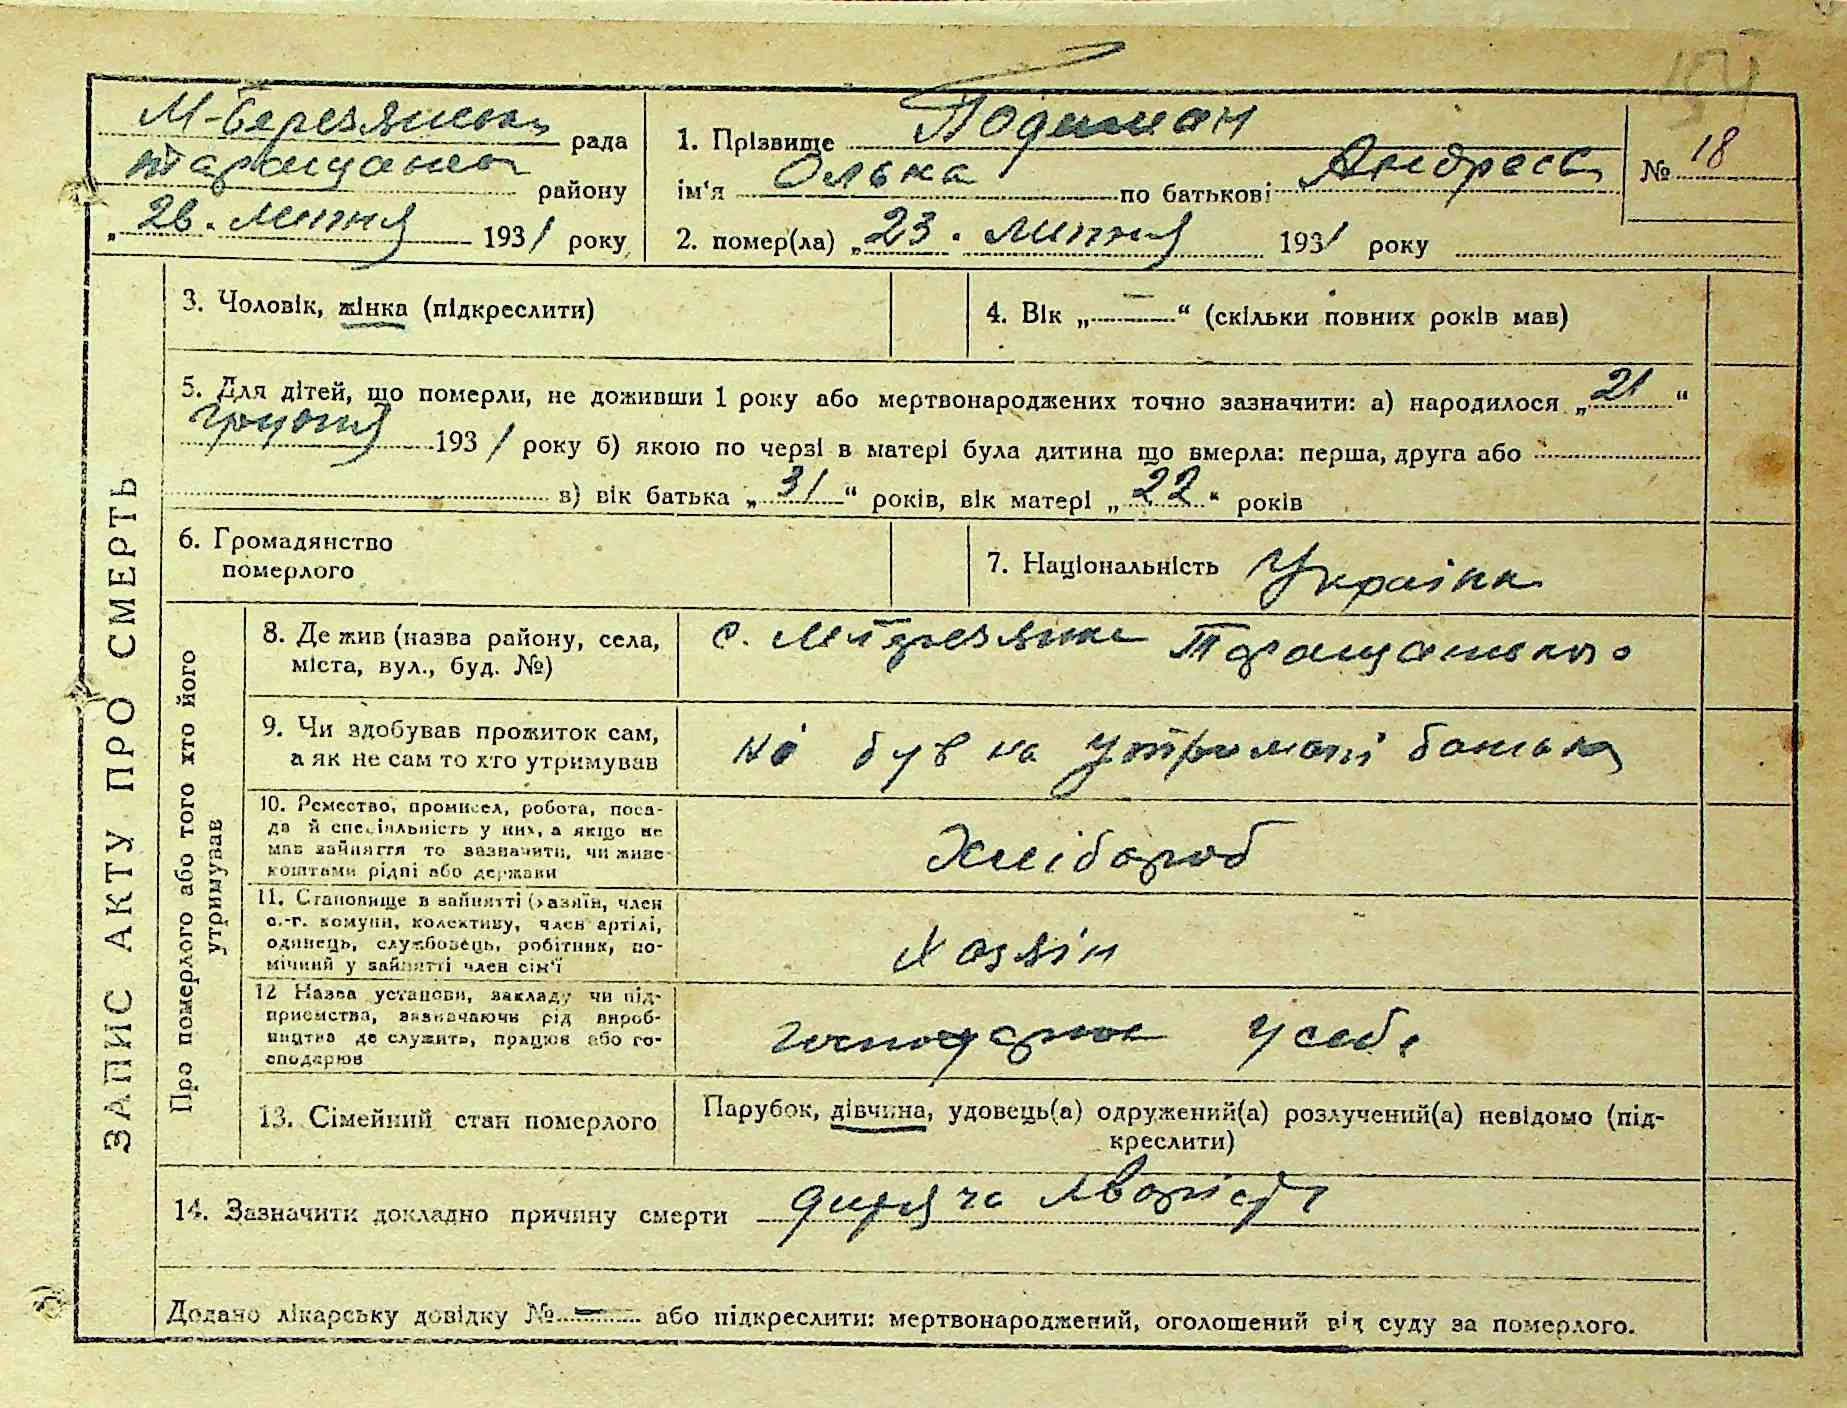 М-Березянська рада
Таращансь району
„26. липня 1931 року
1. Прізвище Подиман
ім'я Олька по батькові Андреєв
№ 18
2. помер(ла) „23. липня 1931 року
ЗАПИС АКТУ ПРО СМЕРТЬ
3. Чоловік, жінка (підкреслити)
4. Вік „—“ (скільки повних років мав)
5. Для дітей, що померли, не доживши 1 року або мертвонароджених точно зазначити: а) народилося „21“
193 / року б) якою по черзі в матері була дитина що вмерла: перша, друга або
в) вік батька „31“ років, вік матері „22“ років
6. Громадянство
померлого
7. Національність Українк
Про померлого або того хто його
утримував
8. Де жив (назва району, села,
міста, вул., буд. №)
с. Таращанського
9. Чи здобував прожиток сам,
а як не сам то хто утримував
ні був на утримані батька
10. Ремество, промисел, робота, поса-
да й спеціяльність у них, а якщо не
мав зайняття то зазначити, чи живе
коштами рідні або держави
Хлібороб
11. Становище в зайнятті (хазяїн, член
с.-г. комуни, колективу, член артілі,
одинець, службовець, робітник, по-
мічний у зайнятті член сім'ї
Хазяїн
12 Назва установи, закладу чи під-
приємства, зазначаючи рід вироб-
ництва де служить, працює або го-
сподарює
господарює у себе
13. Сімейний стан померлого
Парубок, дівчина, удовець(а) одружений(а) розлучений(а) невідомо (під-
креслити)
14. Зазначити докладно причину смерти дитяча
Додано лікарську довідку №— або підкреслити: мертвонароджений, оголошений від суду за померлого.